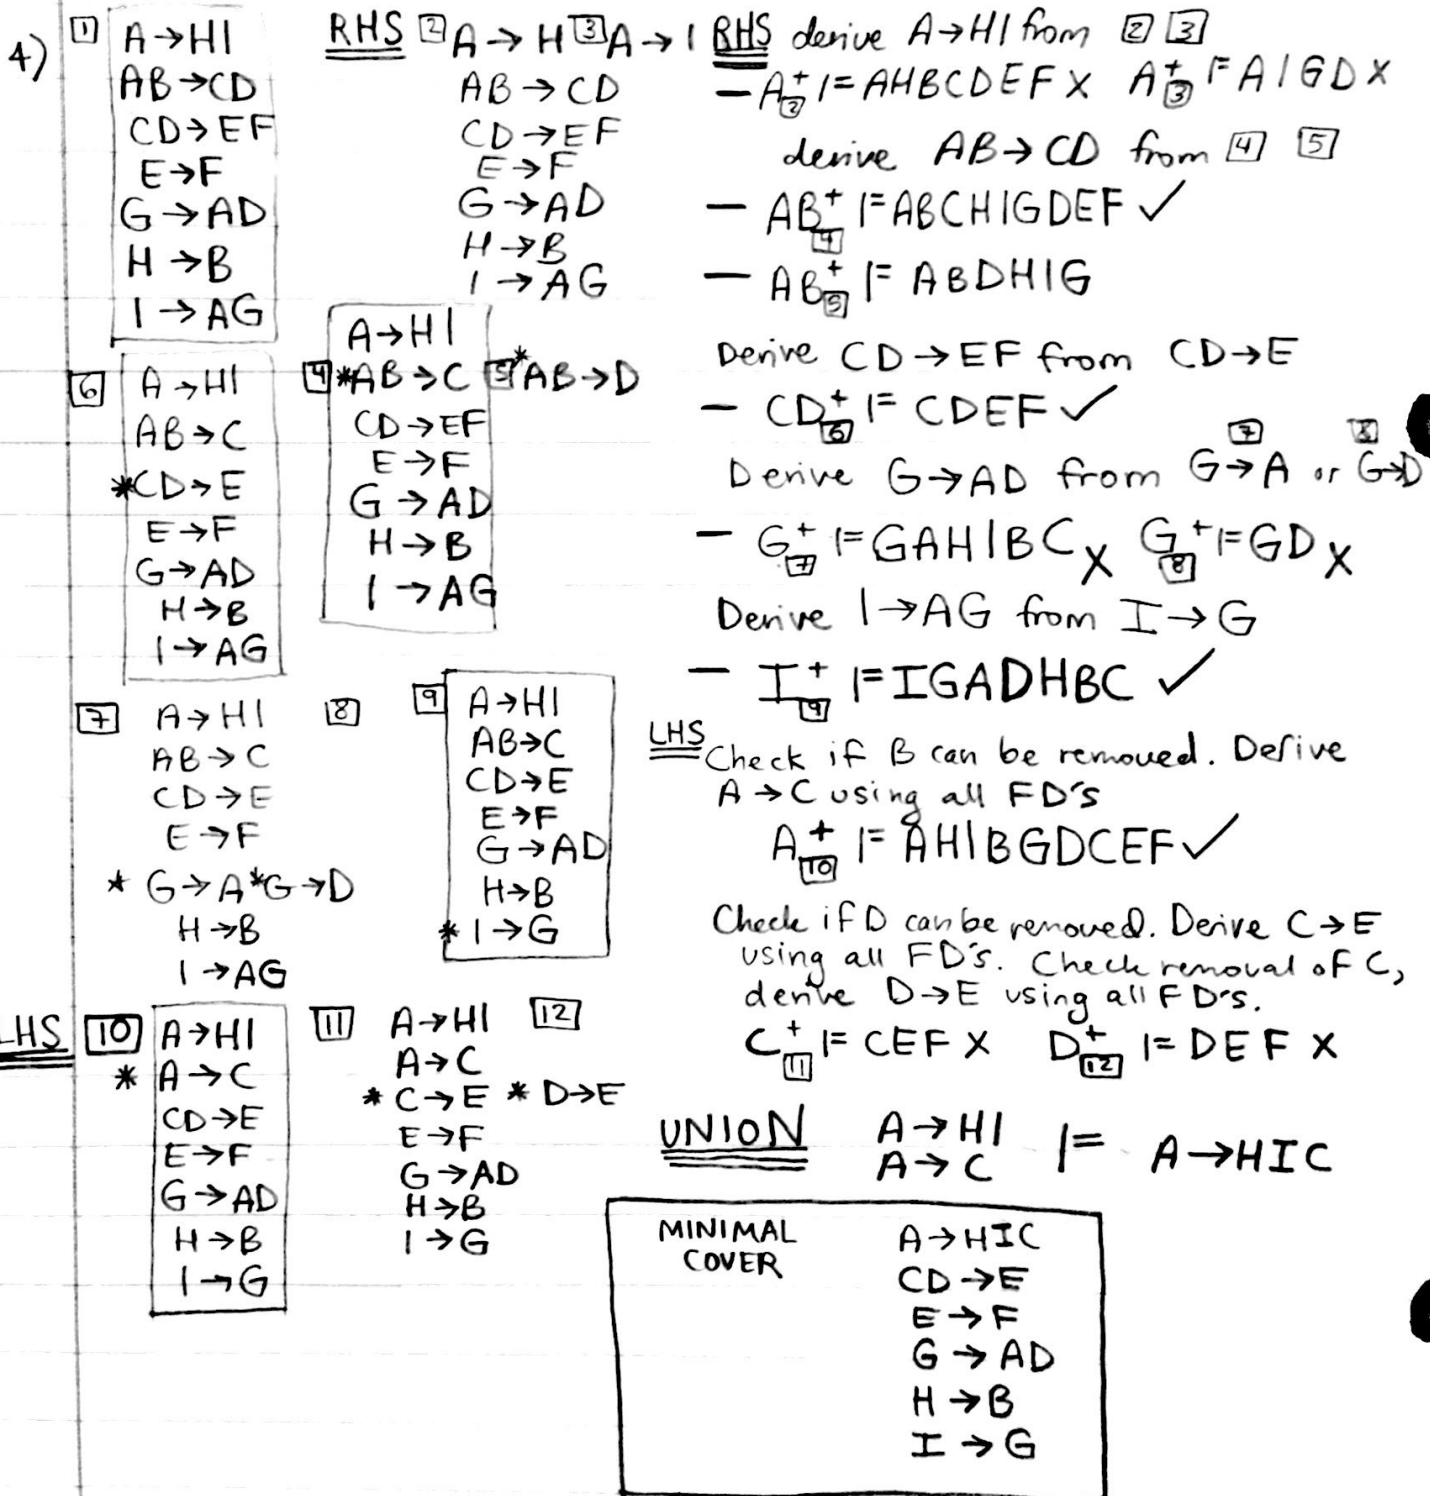 4)
1
A→HI
AB→CD
CD→EF
E→F
G→AD
H→B
I→AG
RHS 2 A→H 3 A→I
AB→CD
CD→EF
E→F
G→AD
H→B
I→AG
A→HI
4 *AB→C 5 *AB→D
CD→EF
E→F
G→AD
H→B
I→AG
6
A→HI
AB→C
*CD→E
E→F
G→AD
H→B
I→AG
7
A→HI
AB→C
CD→E
E→F
* G→A *G→D
H→B
I→AG
8
9
A→HI
AB→C
CD→E
E→F
G→AD
H→B
* I→G
LHS 10
A→HI
* A→C
CD→E
E→F
G→AD
H→B
I→G
11 12
A→HI
A→C
* C→E * D→E
E→F
G→AD
H→B
I→G
RHS derive A→HI from 2 3
— A⁺2 ⊨ AHBCDEF X A⁺3 ⊨ AIGD X
derive AB→CD from 4 5
— AB⁺4 ⊨ ABCHIGDEF ✓
— AB⁺5 ⊨ ABDHIG
Derive CD→EF from CD→E
— CD⁺6 ⊨ CDEF ✓
7 8
Derive G→AD from G→A or G→D
— G⁺7 ⊨ GAHIBC X G⁺8 ⊨ GD X
Derive I→AG from I→G
— I⁺9 ⊨ IGADHBC ✓
LHS Check if B can be removed. Derive
A→C using all FD's
A⁺10 ⊨ AHIBGDCEF ✓
Check if D can be removed. Derive C→E
using all FD's. Check removal of C,
derive D→E using all FD's.
C⁺11 ⊨ CEF X D⁺12 ⊨ DEF X
UNION A→HI ⊨ A→HIC
A→C
MINIMAL
COVER
A→HIC
CD→E
E→F
G→AD
H→B
I→G